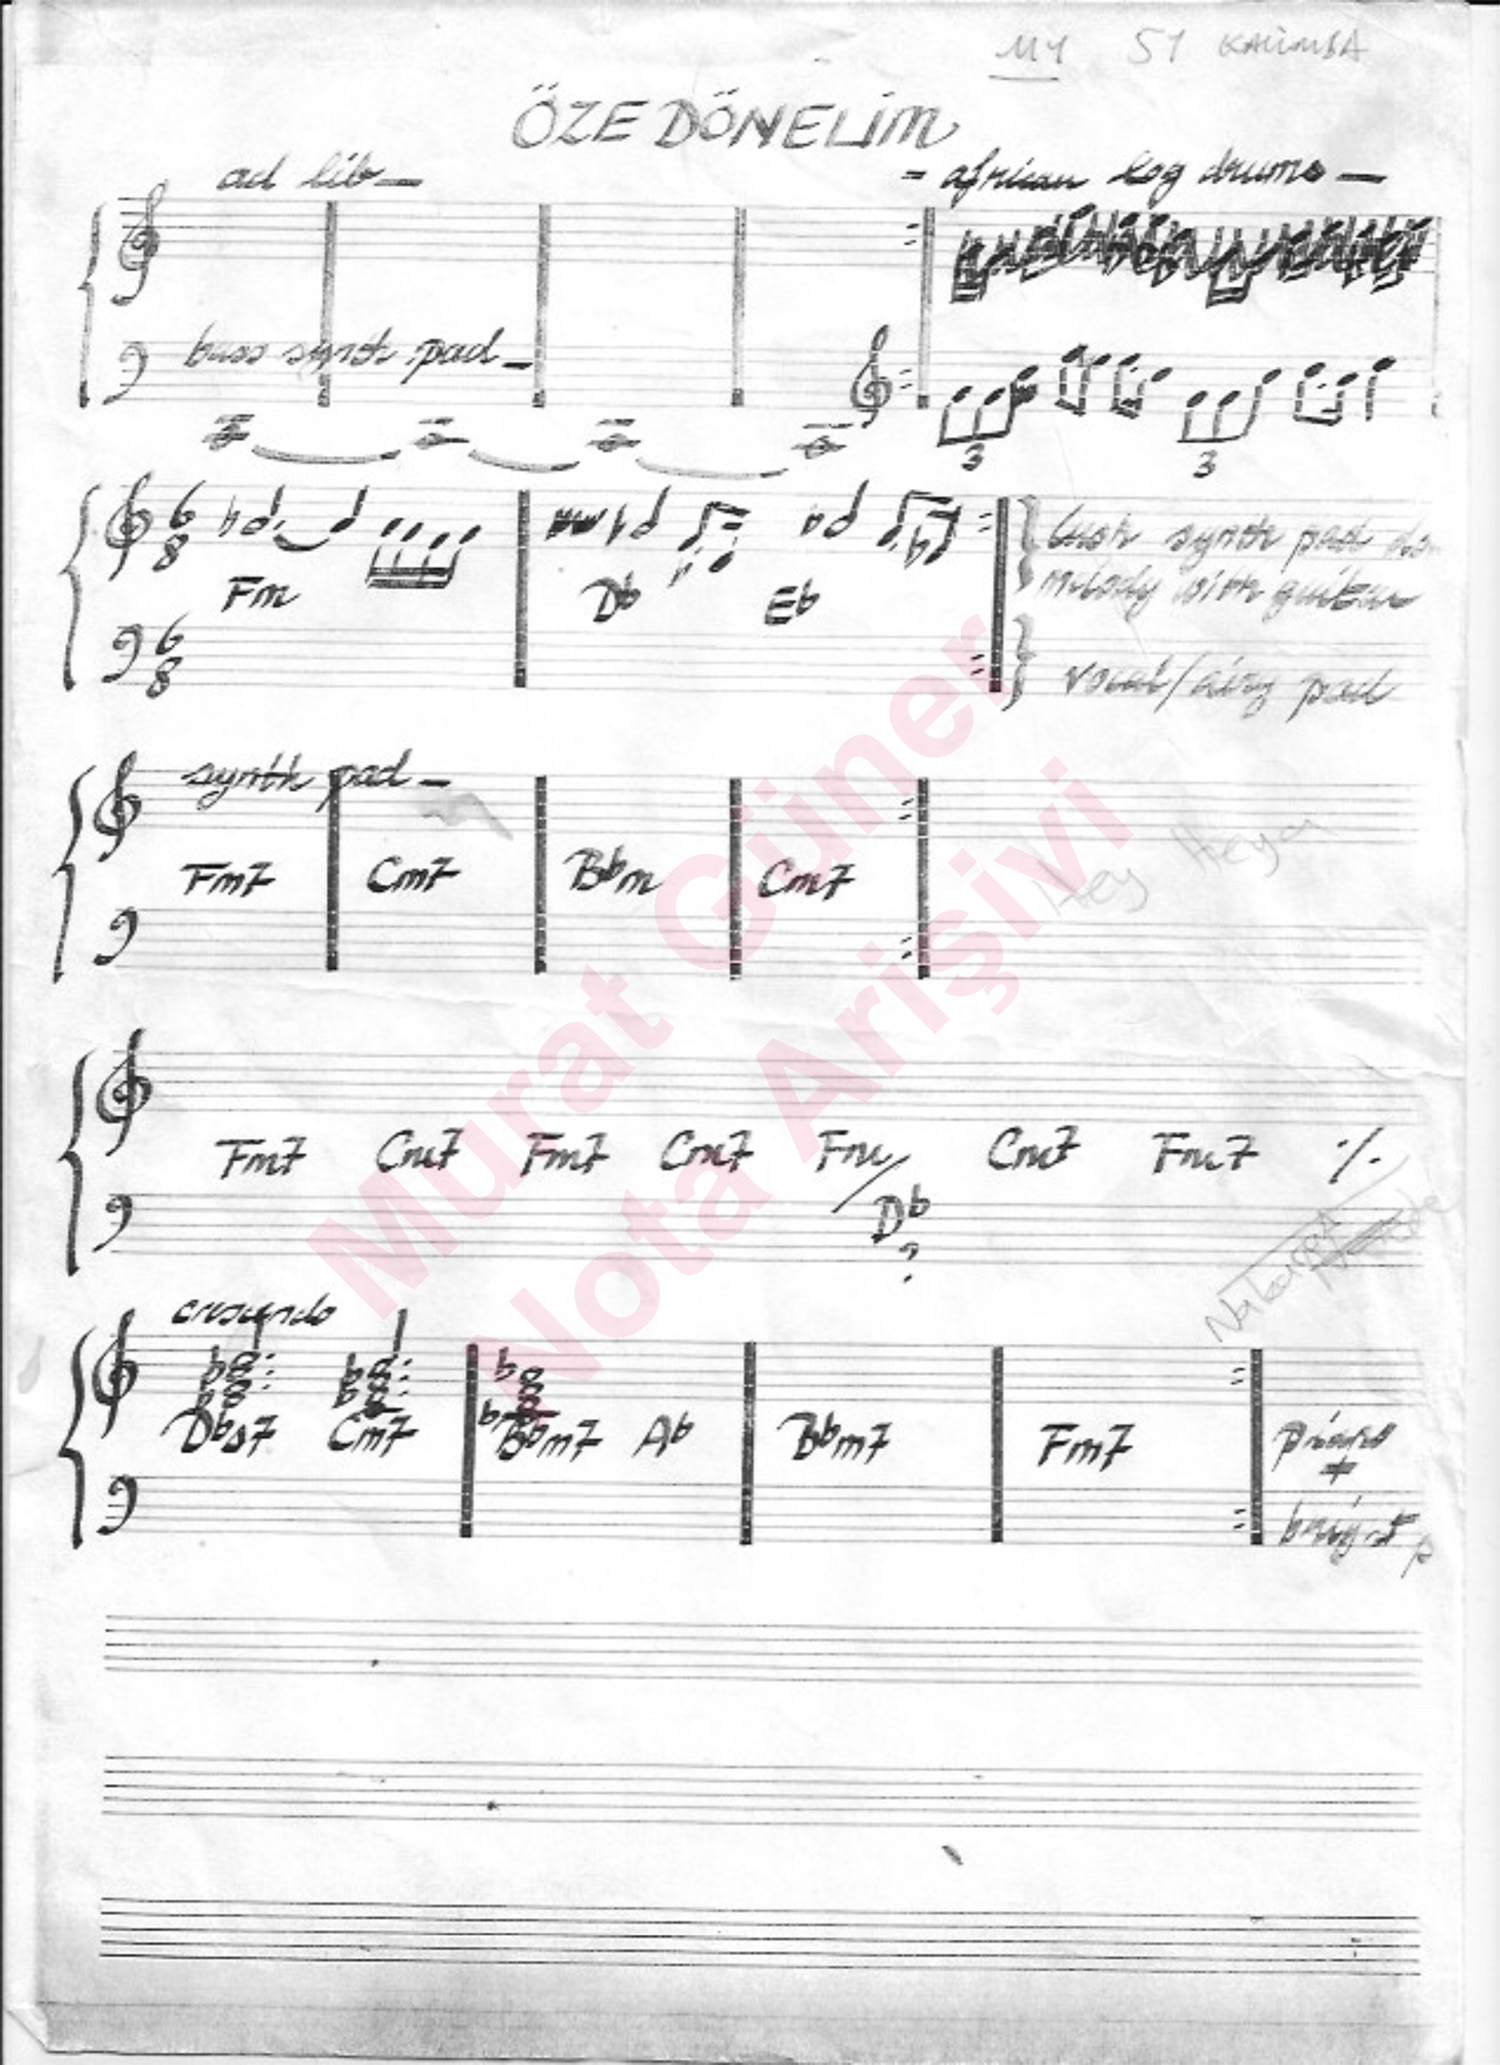 M1 51 KALIMBA
ÖZE DÖNELİM
ad lib
african log drums
bass synth pad
3 3
6 8
Fm Db Eb
6 8
lush synth pad
melody with guitar
vocal/airy pad
synth pad
Fm7 Cm7 Bbm Cm7
Hey Heya
Fm7 Cm7 Fm7 Cm7 Fm/Db Cm7 Fm7 ٪
?
Nakarat
crescendo
DbΔ7 Cm7 Bbm7 Ab Bbm7 Fm7 piano
+
Murat Güner
Nota Arişivi